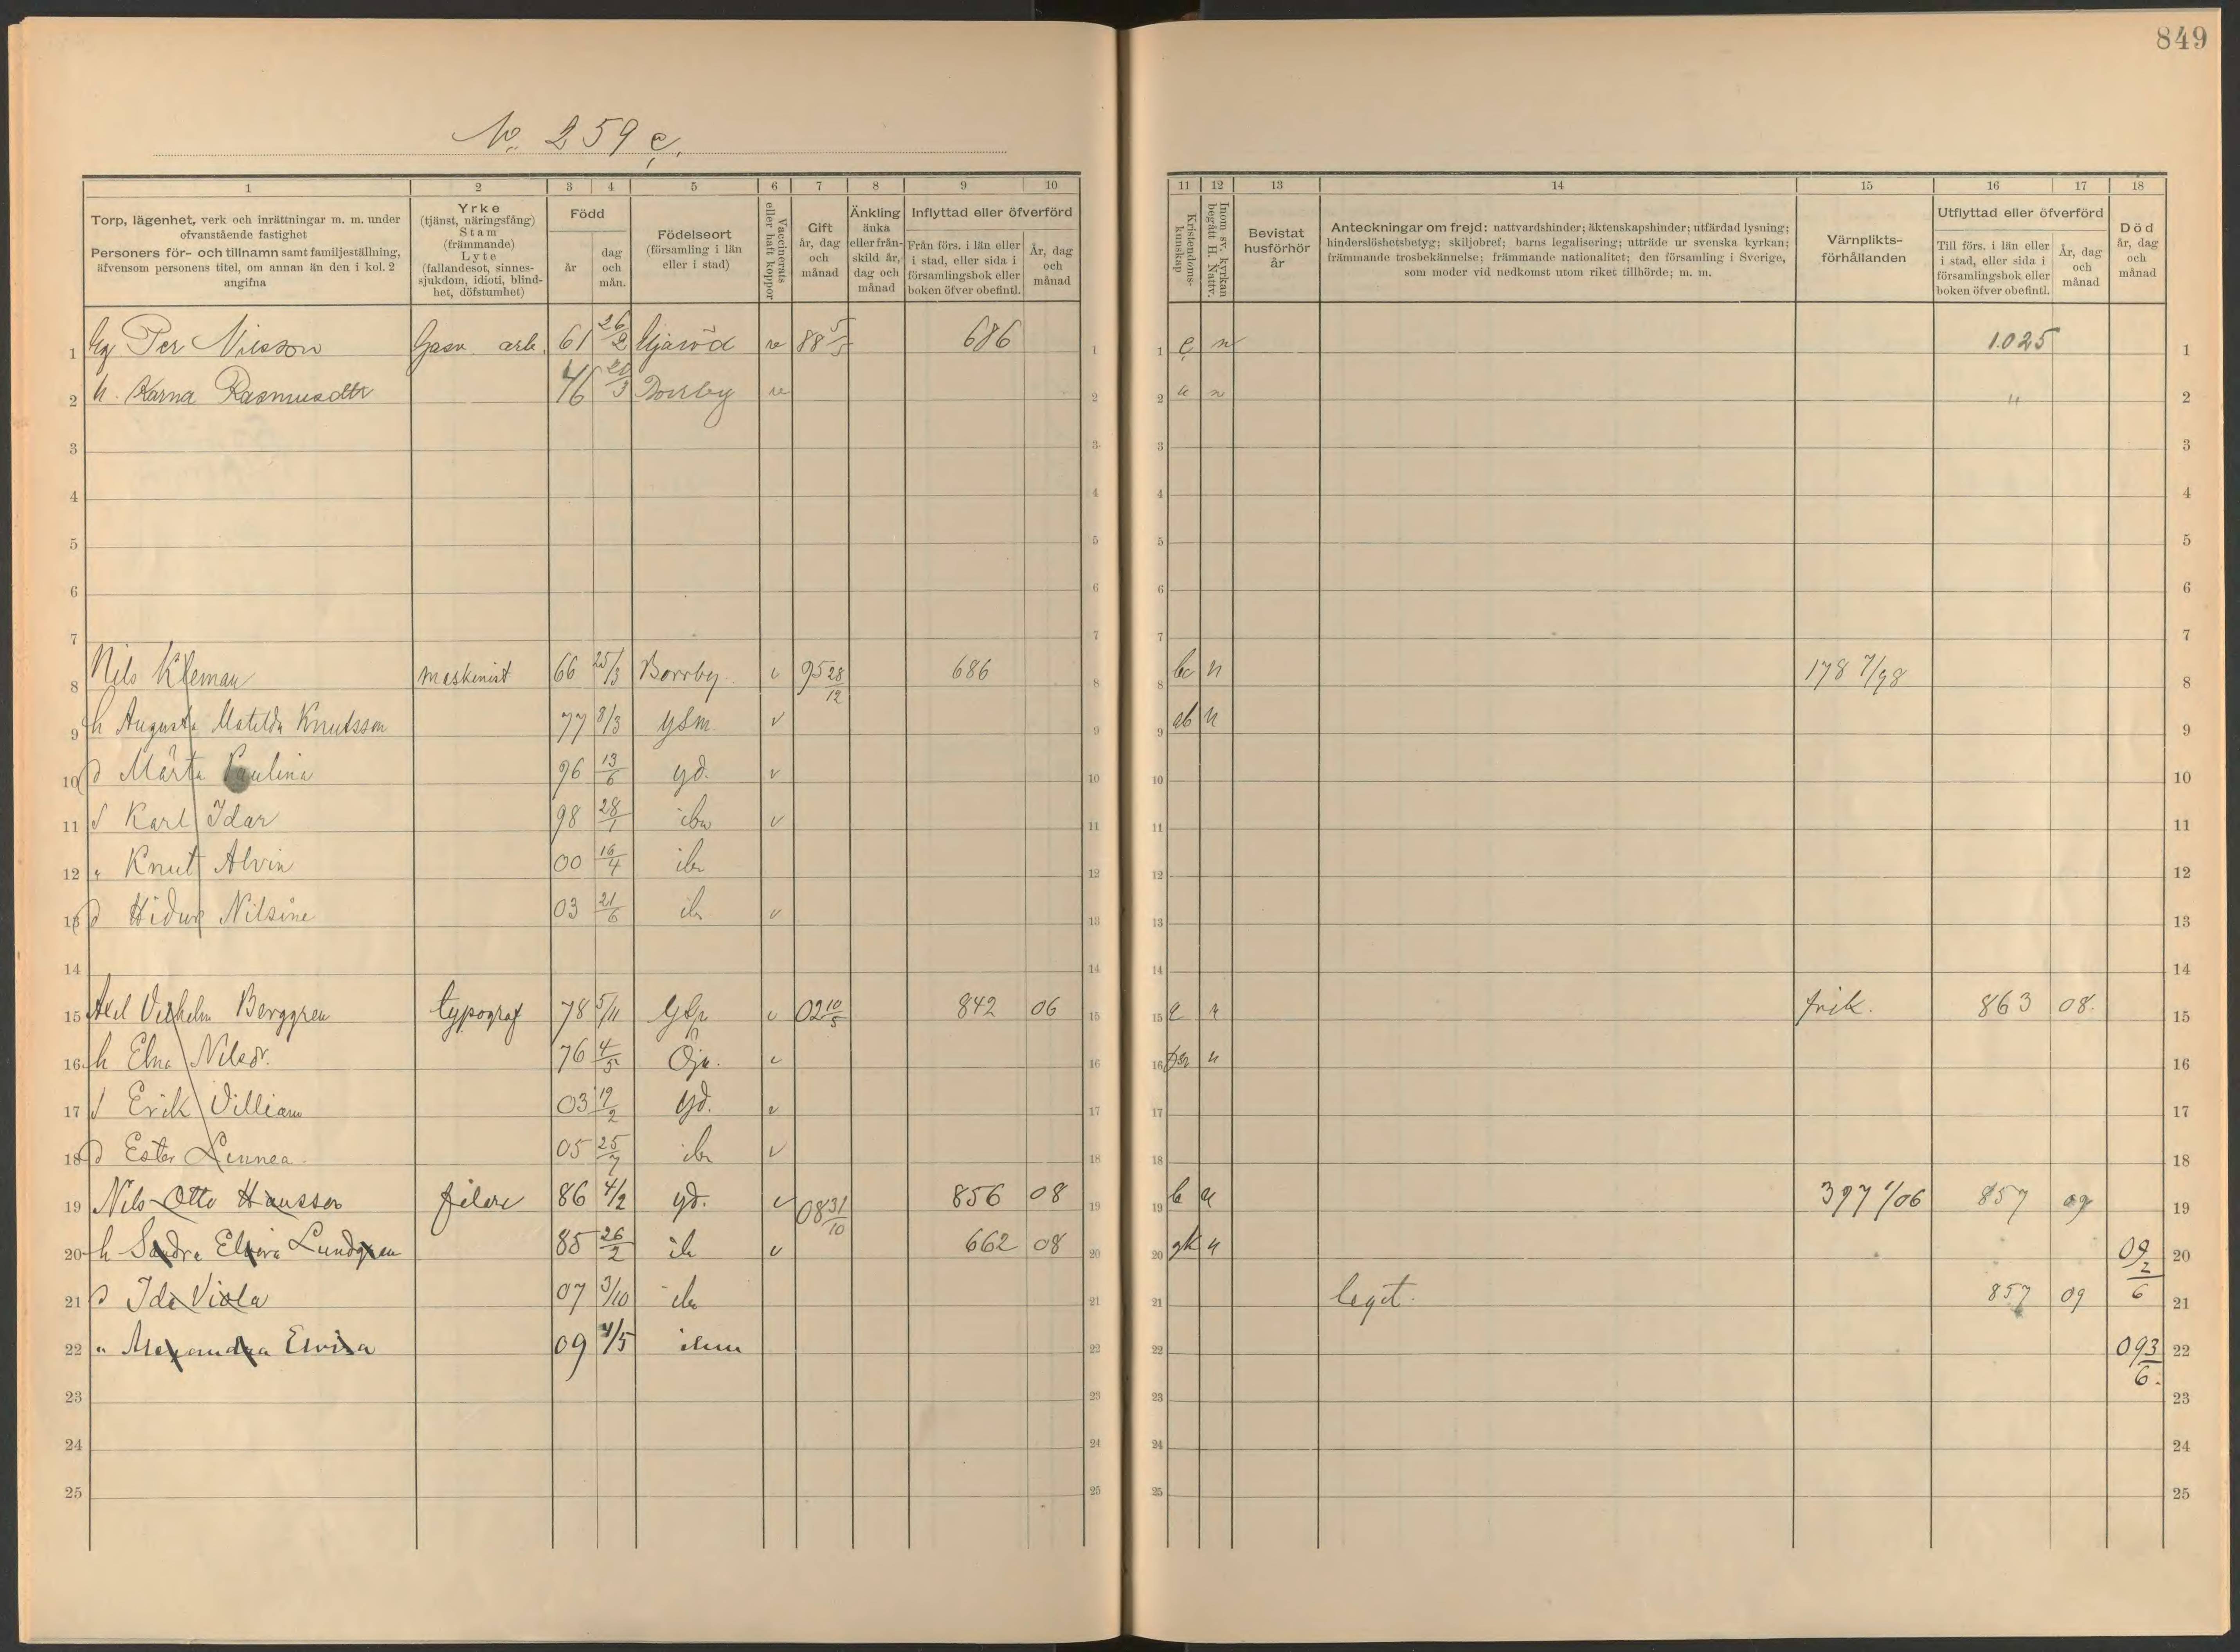 849
No. 259 c.
1 2 3 4 5 6 7 8 9 10
Torp, lägenhet, verk och inrättningar m. m. under ofvanstående fastighet
Personers för- och tillnamn samt familjeställning, äfvensom personens titel, om annan än den i kol. 2 angifna
Yrke (tjänst, näringsfång) Stam (främmande) Lyte (fallandesot, sinnessjukdom, idioti, blindhet, döfstumhet)
Född
år
dag och mån.
Födelseort (församling i län eller i stad)
Vaccinerats eller haft koppor
Gift år, dag och månad
Änkling änka eller frånskild år, dag och månad
Inflyttad eller öfverförd
Från förs. i län eller i stad, eller sida i församlingsbok eller boken öfver obefintl.
År, dag och månad
11 12 13 14 15 16 17 18
Kristendomskunskap
Inom sv. kyrkan begått H. Nattv.
Bevistat husförhör år
Anteckningar om frejd: nattvardshinder; äktenskapshinder; utfärdad lysning; hinderslöshetsbetyg; skiljobref; barns legalisering; utträde ur svenska kyrkan; främmande trosbekännelse; främmande nationalitet; den församling i Sverige, som moder vid nedkomst utom riket tillhörde; m. m.
Värnpliktsförhållanden
Utflyttad eller öfverförd
Till förs. i län eller i stad, eller sida i församlingsbok eller boken öfver obefintl.
År, dag och månad
Död år, dag och månad
1 Per Nilsson 61 26/2 v 88 5/5 686 1 1 n 1.025 1
2 h. Karna Rasmusdtr 46 3 v 2 2 n " 2
3 3 3 3
4 4 4 4
5 5 5 5
6 6 6 6
7 7 7 7
8 Nils Kleman maskinist 66 25/3 Borrby v 95 28/12 686 8 8 bc n 178 7/98 8
9 h Augusta Matilda Knutsson 77 8/3 v 9 9 ab n 9
10 d Märta Paulina 96 13/6 yd. v 10 10 10
11 s Karl Idar 98 28/1 ibm v 11 11 11
12 " Knut Alvin 00 16/4 ib 12 12 12
13 d Hidur Nilsine 03 21/6 ib v 13 13 13
14 14 14 14
15 Axel Vilhelm Berggren typograf 78 5/11 v 02 10/5 842 06 15 15 a n frik. 863 08. 15
16 h Elna Nilsdr. 76 4/5 Öja. v 16 16 n 16
17 s Erik Villiam 03 19/2 yd. v 17 17 17
18 d Ester Linnea. 05 25/7 ibm v 18 18 18
19 Nils Otto Hansson filare 86 4/2 yd. v 08 31/10 856 08 19 19 b n 397 1/06 857 09 19
20 h Sandra Elvira Lundgren 85 26/2 ib v 662 08 20 20 n 09 2/6 20
21 d Ida Viola 07 3/10 ibm 21 21 legit. 857 09 21
22 " Alexandra Elvira 09 4/5 ibm 22 22 09 3/6. 22
23 23 23 23
24 24 24 24
25 25 25 25